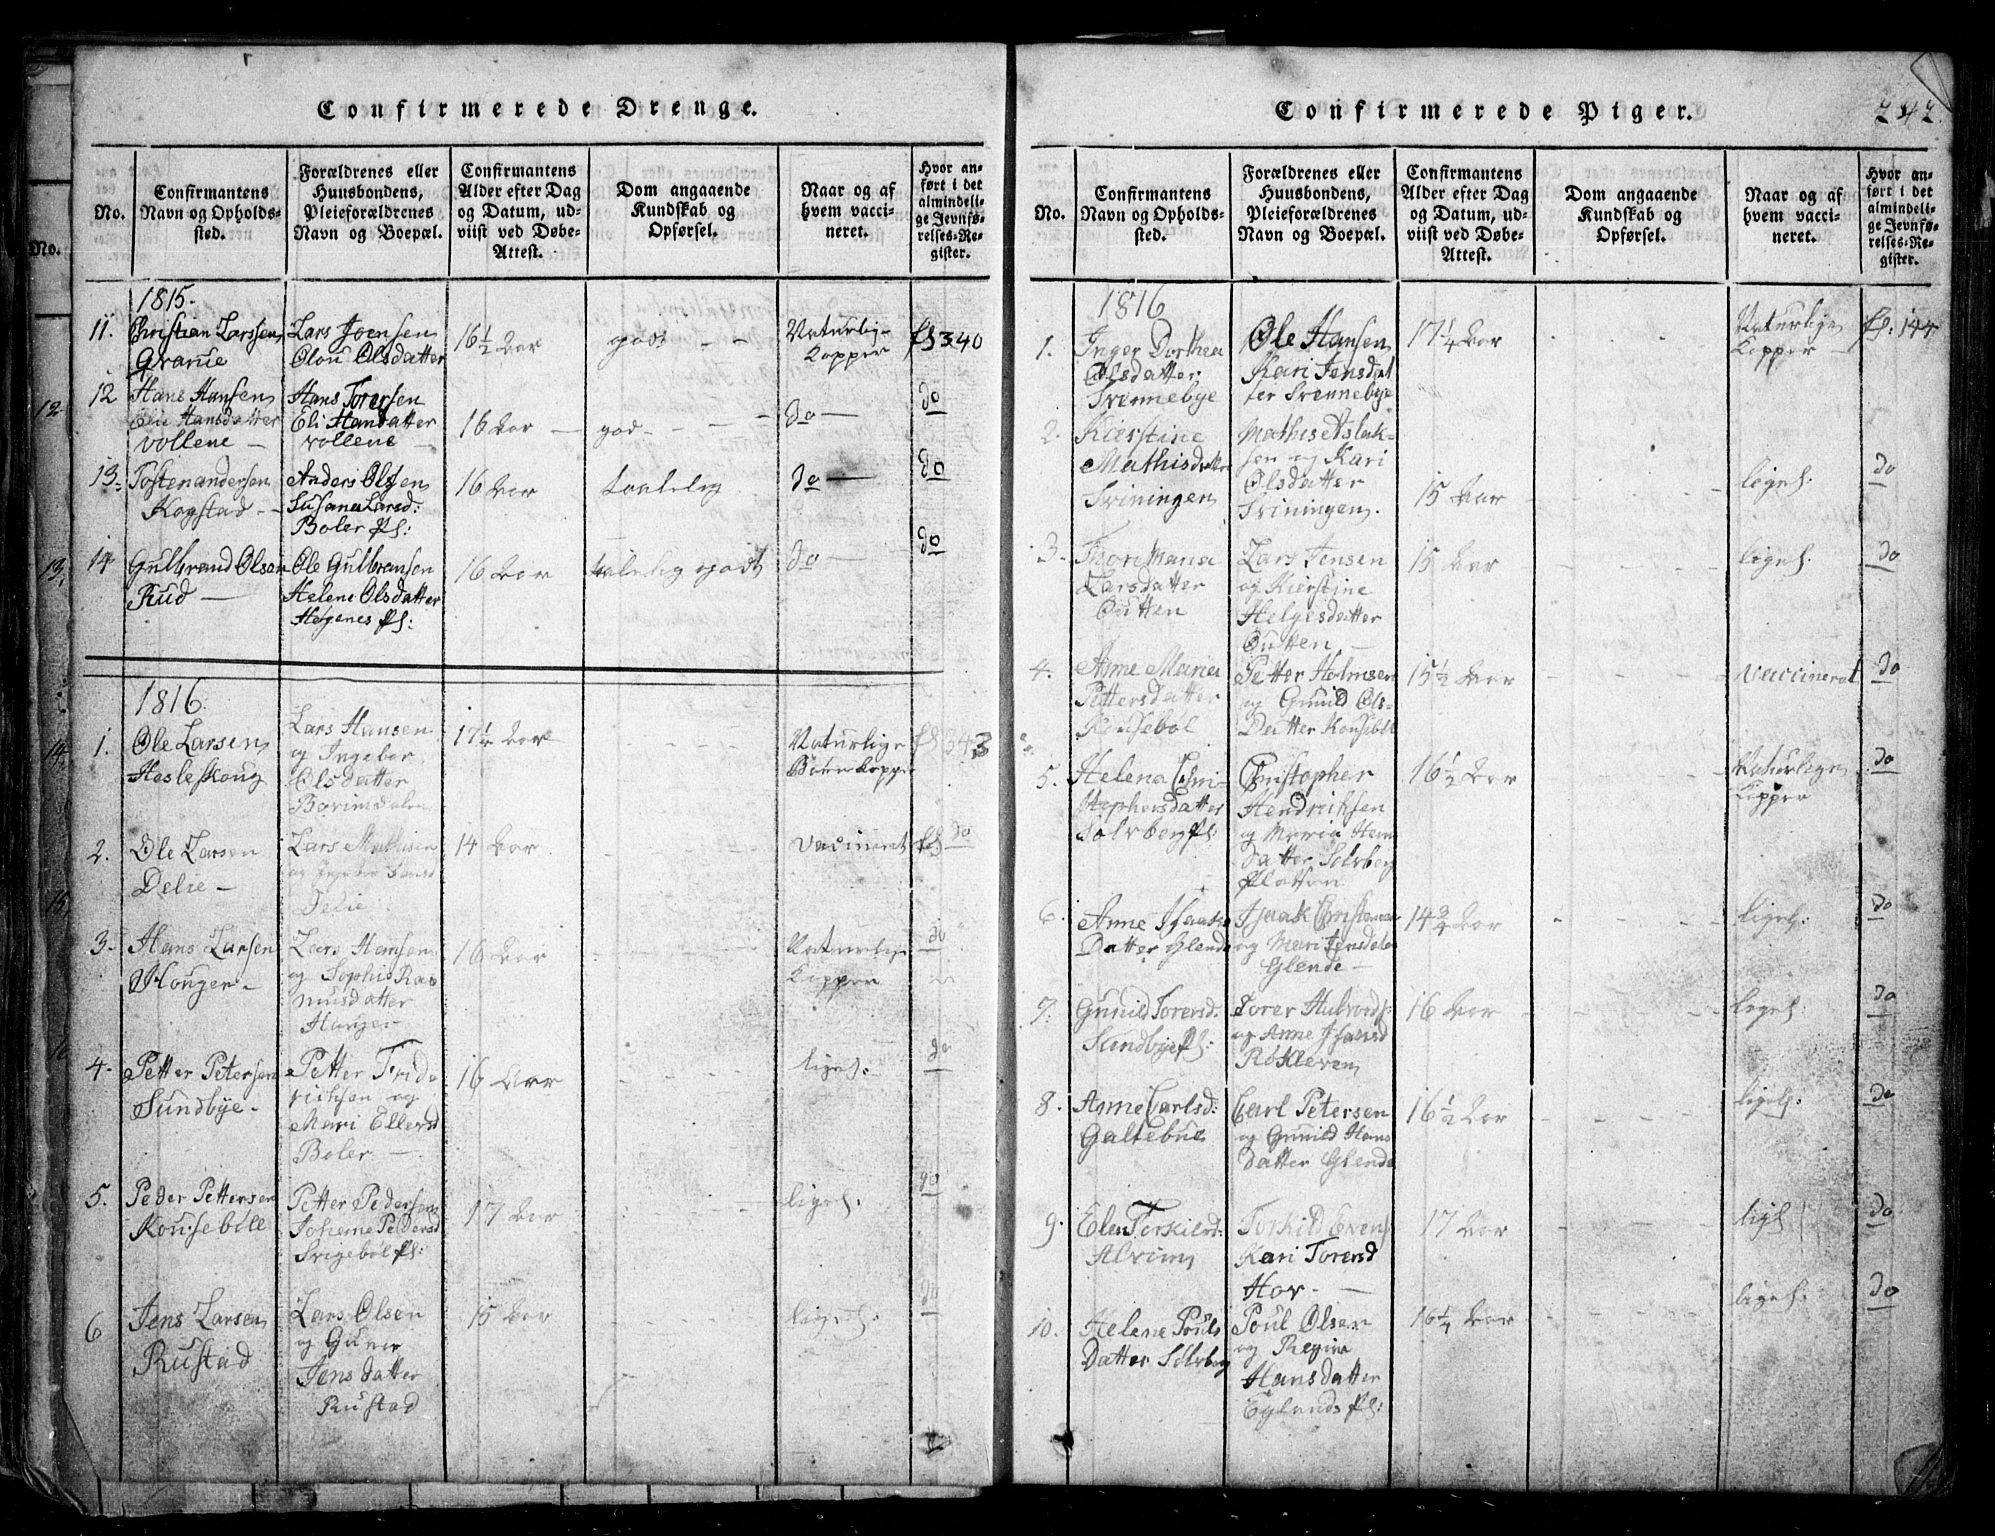 Confirmerede Drenge.
No.
Confirmantens
Navn og Opholds-
sted.
Forældrenes eller
Huusbondens,
Pleieforældrenes
Navn og Boepæl.
Confirmantens
Alder efter Dag
og Datum, ud-
viist ved Døbe-
Attest.
Dom angaaende
Kundskab og
Opførsel.
Naar og af
hvem vacci-
neret.
Hvor an-
ført i det
almindeli-
ge Jevnfø-
relses-Re-
gister.
1815.
11.
Christian Larssen
Lars Joensen
Olou Olsdatter
16½ Aar
godt
Naturlig-
Kopper
340
12
Hans Hansen
Eli Hansdatter
vollene
Hans Toresen
Eli Hansdatter
vollene
16 Aar
god
do
do
13.
Tosten andersen
Kogstad
Anders Olsen
Susana Larsd:
Boler Pl:
16 Aar
taalelig
do
do
14
Gulbrand Olsen
Rud
Ole Gulbransen
Helene Olsdatter
Høgenes Pl:
16 Aar
talelig godt
do
do
1816.
1.
Ole Larsen
Hesleskoug
Lars Hansen
og Ingebor
Olsdatter
17¼ Aar
Naturlige
Børnekopper
343
2.
Ole Larsen
Delie
Lars Mathisen
Delie
14 Aar
Vacineret
do
3.
Hans Larsen
Houger
Lars Hansen
og Sophia Ras
musdatter
Houger
16 Aar
Naturlige
Kopper
do
4.
Petter Petersen
Sundbye
Petter Fride
richsen og
Mari Ellersd
Boler
16 Aar
ligel:
do
5.
Peder Pettersen
Kousebøll
Petter Pedersen
Johanne Pedersd
Svigebøl Pl:
17 Aar
ligel:
do
6
Jens Larsen
Rustad
Lars Olsen
og Guner
Jensdatter
Rustad
15 Aar
ligel:
do
Confirmerede Piger.
242.
No.
Confirmantens
Navn og Opholds-
sted.
Forældrenes eller
Huusbondens,
Pleieforældrenes
Navn og Boepæl.
Confirmantens
Alder efter Dag
og Datum, ud-
viist ved Døbe-
Attest.
Dom angaaende
Kundskab og
Opførsel.
Naar og af
hvem vacci-
neret.
Hvor an-
ført i det
almindeli-
ge Jevnfø-
relses-Re-
gister.
1816
1.
Inger Dorthea
Olsdatter
Svennebye
Ole Hansen
Kari Jensdat
ter Svennebye
17¼ Aar
Naturlige
Kopper
2.
Kierstine
Mathisdatter
Sviningen
Mathis Aslak-
sen og Kari
Olsdatter
Sviningen.
15 Aar
ligel.
do
3.
Thori Maria
Larsdatter
Outten
Lars Jensen
og Kierstine
Helgesdatter
Outten
15 Aar
ligel.
do
4.
Anne Maria
Pettersdatter
Kousebøl
Petter Holmsen
og Gunild Ols-
Datter Kousebøl
15½ Aar
Vaccineret
do
5.
Helena Chri-
stophersdatter
Solvberg Pl:
Christopher
Hendrichsen
og Maria Hans
datter Solvberg
Pladsen
16½ Aar
Naturlige
Kopper
do
6.
Anne Isaaks
Datter Glende
Isaak Christensen
og Mari Jensdatter
Glende
14¾ Aar
ligel:
do
7.
Gunild Torersd:
Sundbye Pl:
Torer Halvords:
og Anne Hansd
Røskleven
16 Aar
ligel:
do
8.
Anne Carlsd:
Galtebue
Carl Petersen
og Gunild Hans
Datter Glende
16½ Aar
ligel:
do
9.
Elen Torkildsd:
Alvum
Torkild Evens
Kari Torersd
Hov
17 Aar
ligel
do
10.
Helene Pouls
Datter Sølvberg
Poul Olsen
og Regine
Hansdatter
Eylands Pl:
16¼ Aar
ligel:
do